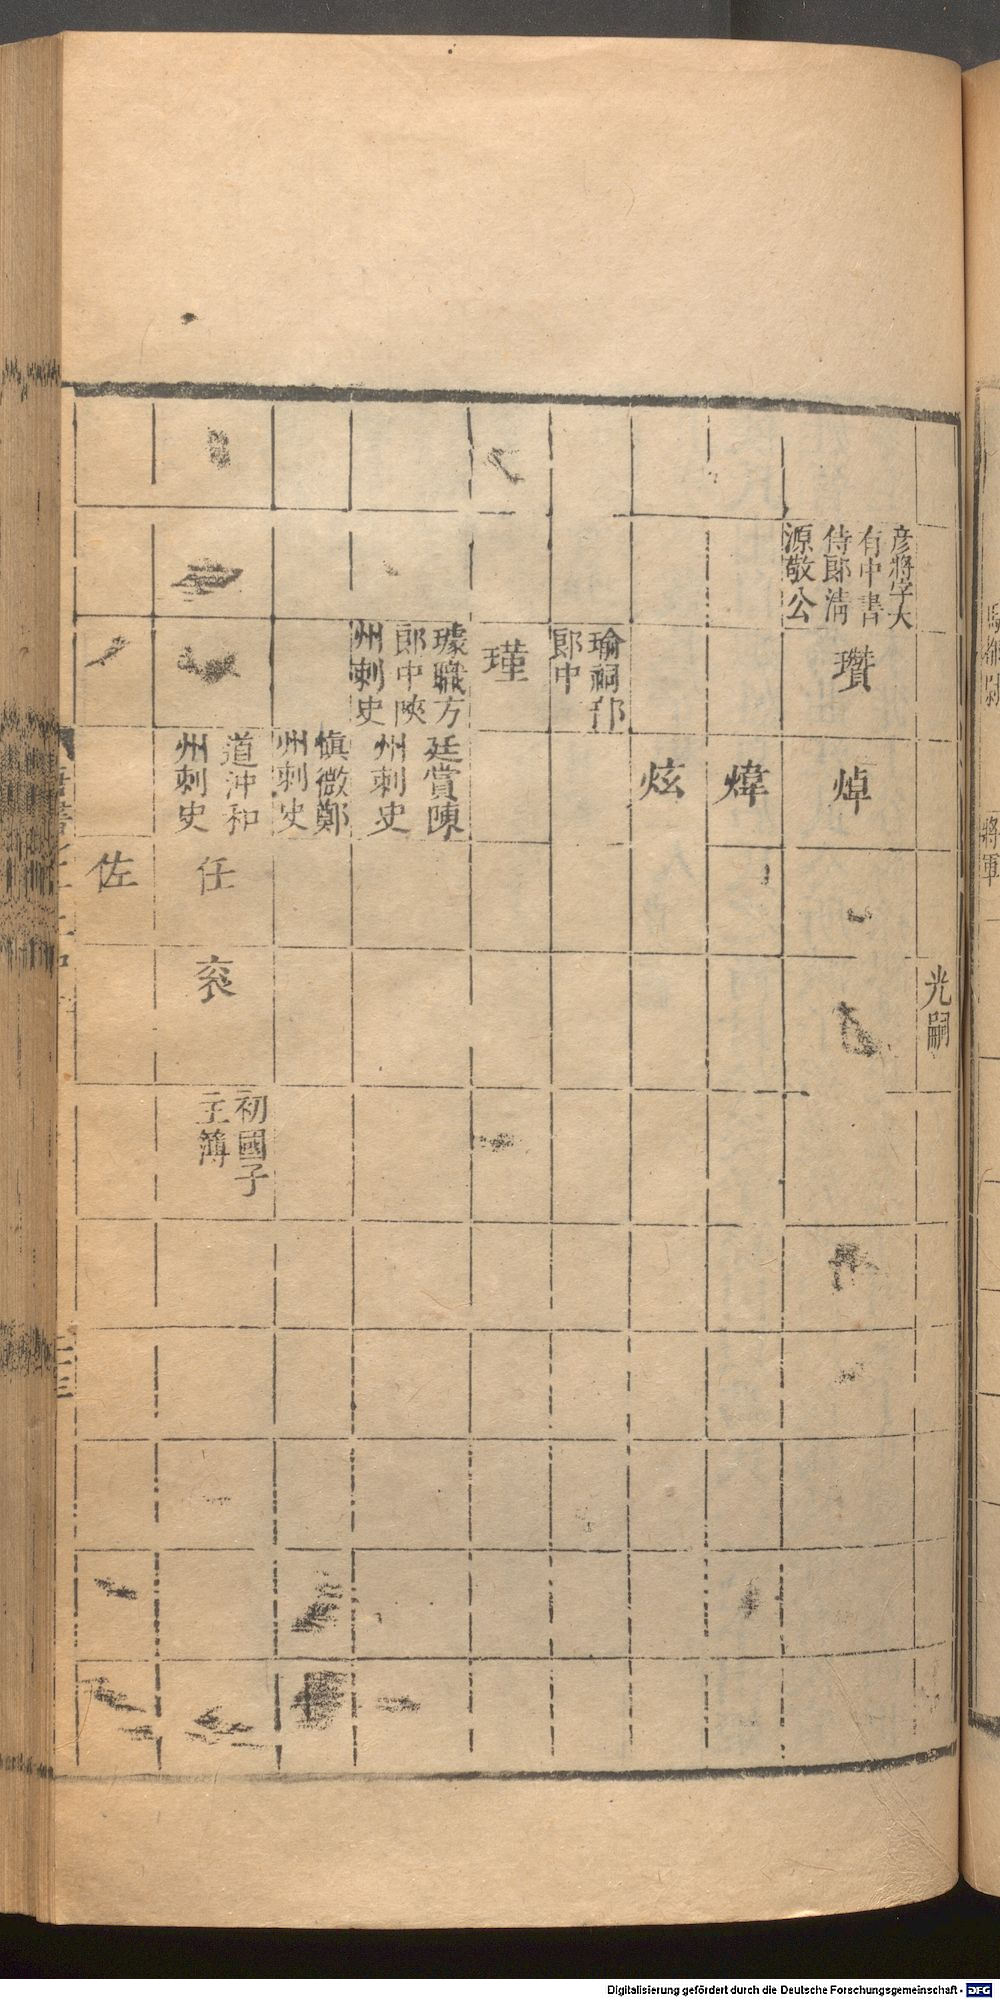 光嗣
彦將字大
有中書
侍郎清
源敬公
瓚
焯
煒
炫
瑜祠部
郎中
瑾
璩職方
郎中陝
州刺史
廷賞陳
州刺史
慎微鄭
州刺史
道沖和
州刺史
任
衮
初國子
主簿
佐
將軍
Digitalisierung gefördert durch die Deutsche Forschungsgemeinschaft - DFG